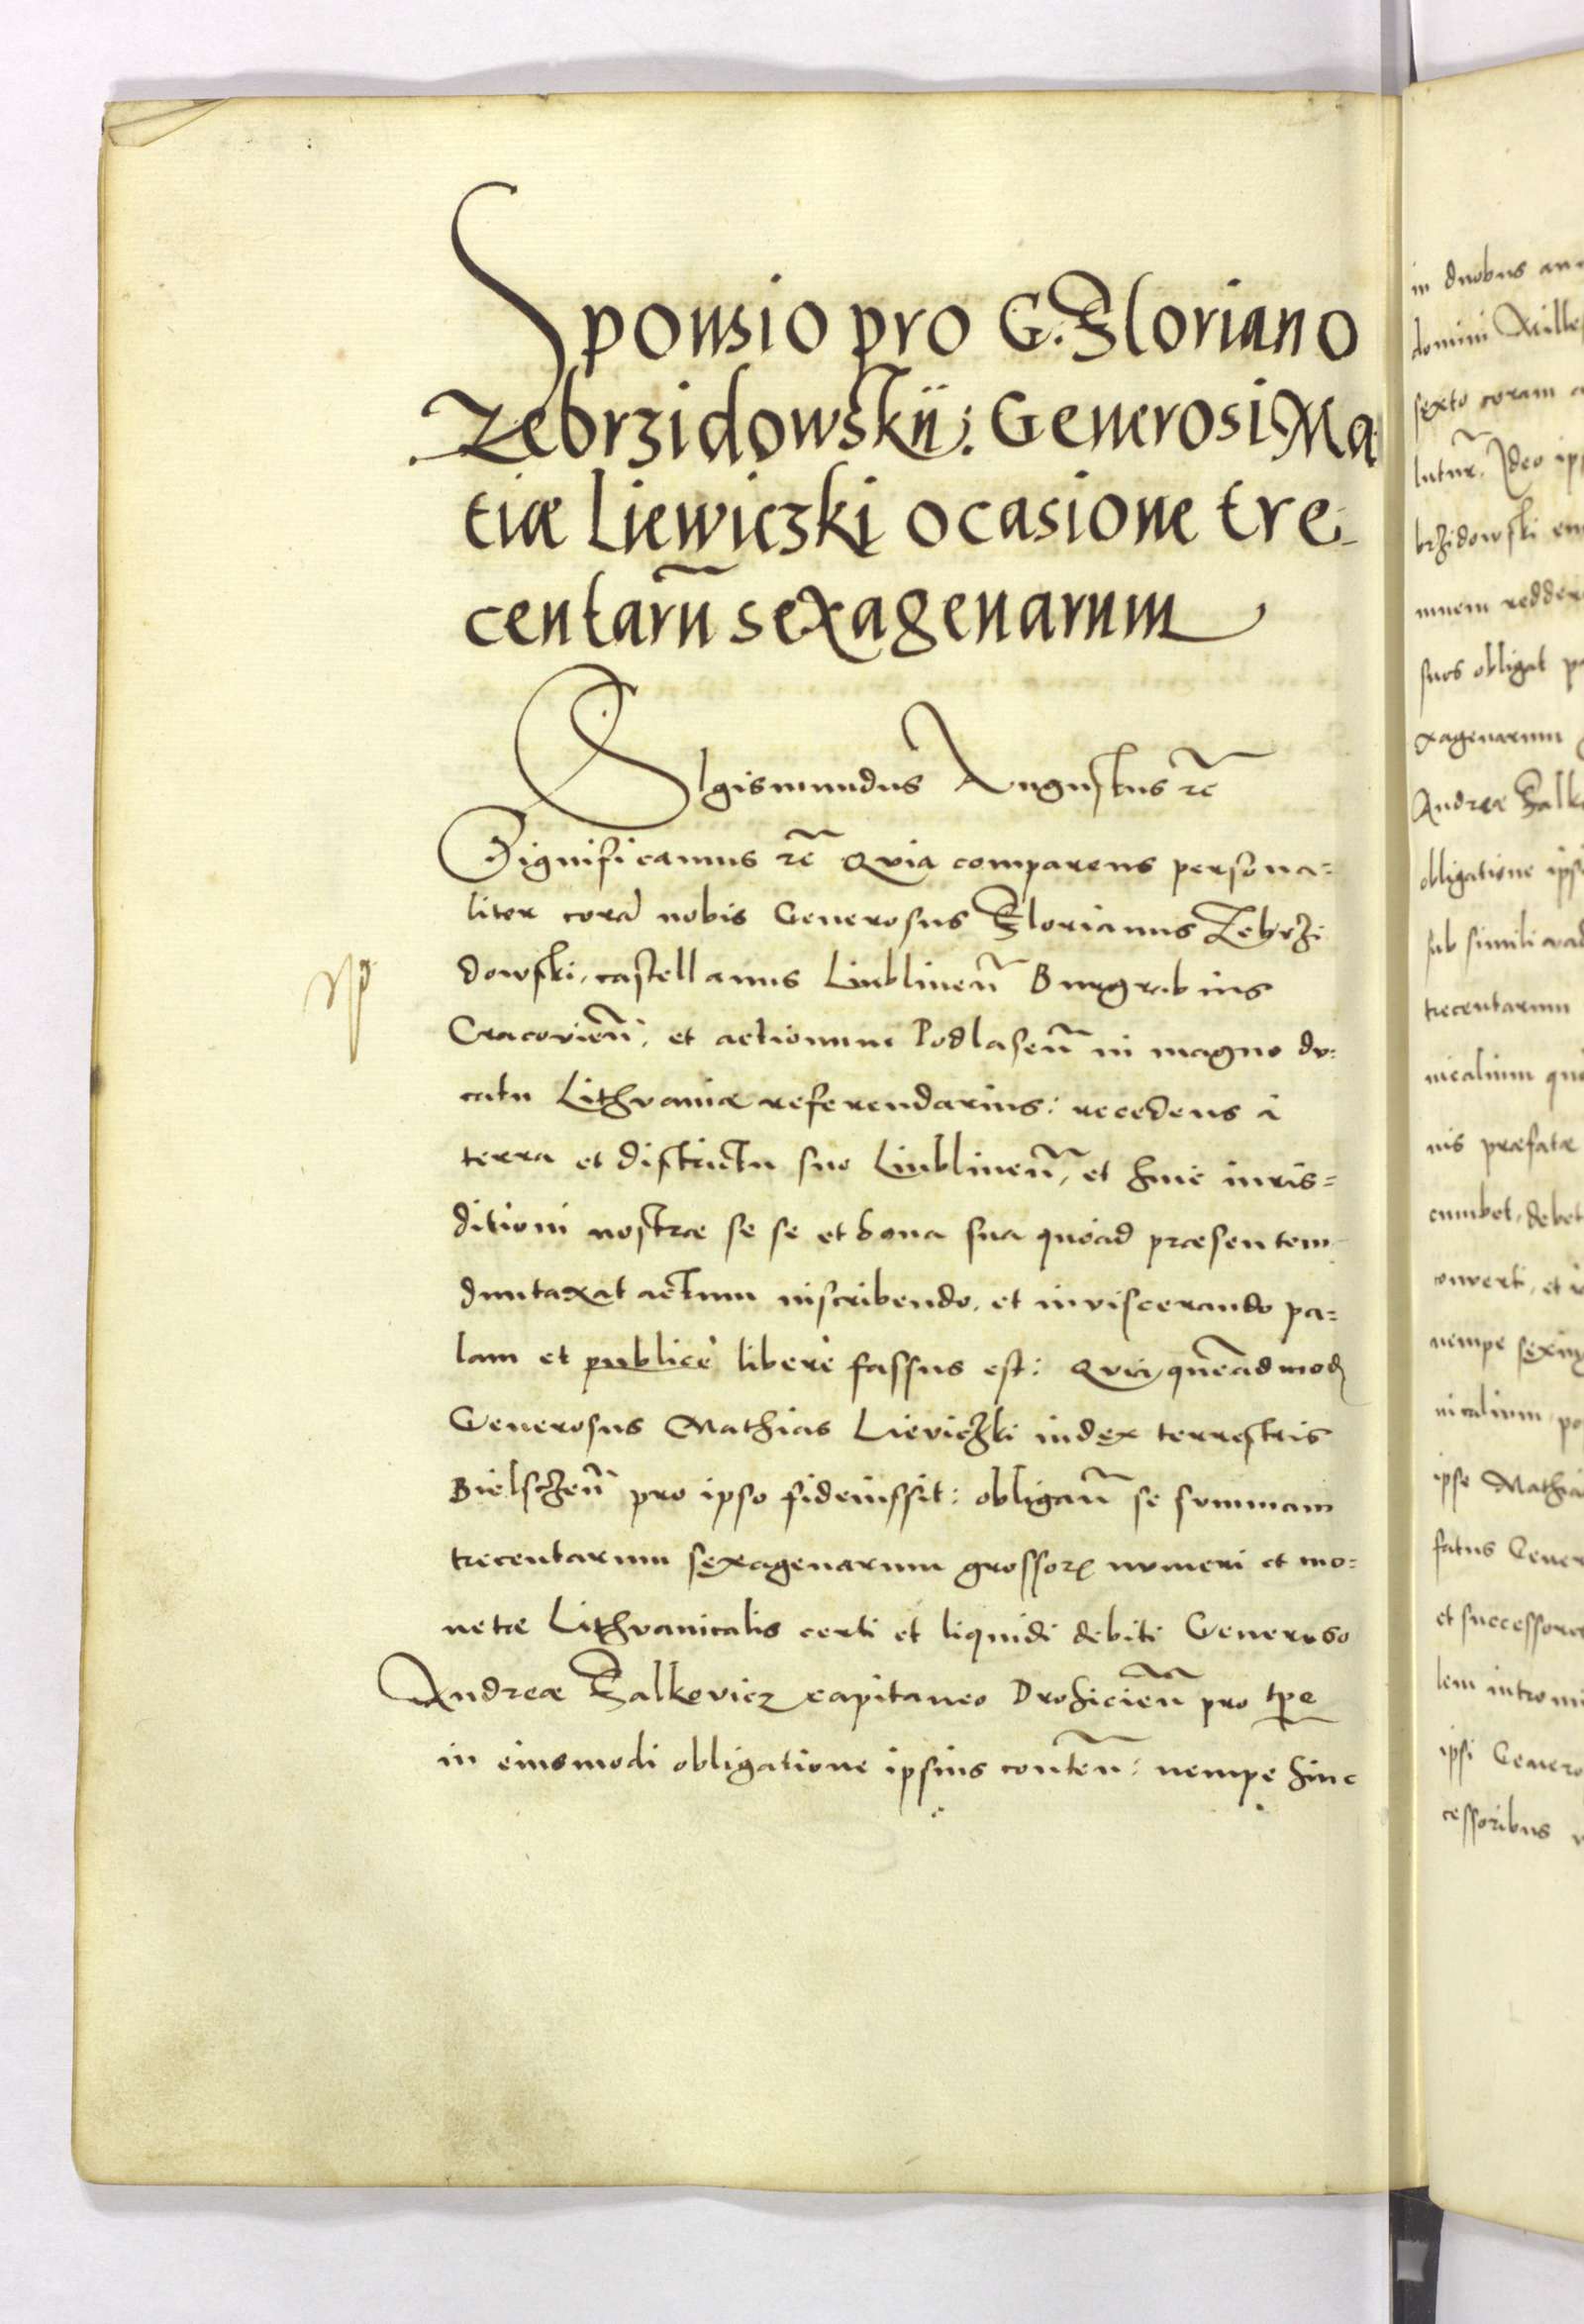 Sponsio pro G. Floriano
Zebrzidowskij: Generosi Ma
tiæ Liewiczki ocasione tre-
centarũ sexagenarum
SIgismundus Augustus rē
Significamus rē Qvia comparens persona=
liter corā nobis Generosus Florianus Zebrzi
dowski, castellanus Liublinen̄ Burgrabius
Cracovien̄, et actionum Podlasen̄ in magno du=
catu Lithvaniæ referendarius: recedens à
terra et districtu suo Liublinen̄, et huic iuris=
ditioni nostræ se se et bona sua quoad præsentem
duntaxat actum inscribendo, et inviscerando pa=
lam et publicè liberè fassus est: Qvia, quēadmodū
Generosus Mathias Lieviczki iudex terrestris
Bielsczen̄ pro ipso fideiussit: obligan̄ se summam
trecentarum sexagenarum grossorꝝ numeri et mo=
netæ Lithvanicalis certi et liquidi debiti Generoso
Andreæ Falkovicz capitaneo Drohicien̄ pro tpe
in eiusmodi obligatione ipsius conten̄: nempe hinc
in duobus
domini Mille
sexto coram
lutur̄. Ideo
brzidowski
reddere
suos obligat
xagenarum
Andreæ Falko
obligatione
sub simili
trecentarum
nicalium
nis præfatæ
cumbet, debet
converti, et
nempe
nicalium
ipse Mathia
fatus Gener
et successor
lem intromi
ipsi Genero
cessoribus